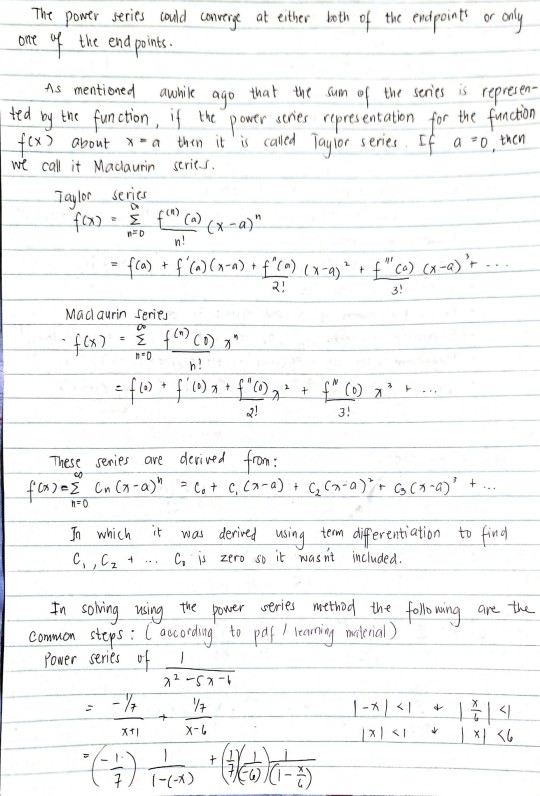 The power series could converge at either both of the endpoints or only
one of the endpoints.
As mentioned awhile ago that the sum of the series is represen-
ted by the function, if the power series representation for the function
f(x) about x = a then it is called Taylor series. If a = 0, then
we call it Maclaurin series.
Taylor series
f(x) = ∞ Σ n=0 f⁽ⁿ⁾(a)/n! (x-a)ⁿ
= f(a) + f'(a)(x-a) + f"(a)/2! (x-a)² + f'''(a)/3! (x-a)³ + ...
Maclaurin series
· f(x) = ∞ Σ n=0 f⁽ⁿ⁾(0)/n! xⁿ
= f(0) + f'(0) x + f"(0)/2! x² + f'''(0)/3! x³ + ...
These series are derived from:
f(x) = ∞ Σ n=0 Cn (x-a)ⁿ = C₀ + C₁ (x-a) + C₂ (x-a)² + C₃ (x-a)³ + ...
In which it was derived using term differentiation to find
C₁, C₂ + ... C₀ is zero so it wasn't included.
In solving using the power series method the following are the
common steps: (according to pdf / learning material)
Power series of 1/x² - 5x - 6
= -1/7 / x+1 + 1/7 / x-6 |-x| < 1 + |x/6| < 1
|x| < 1 + |x| < 6
= (-1/7) 1/1-(-x) + (1/7)(1/-6) 1/(1 - x/6)